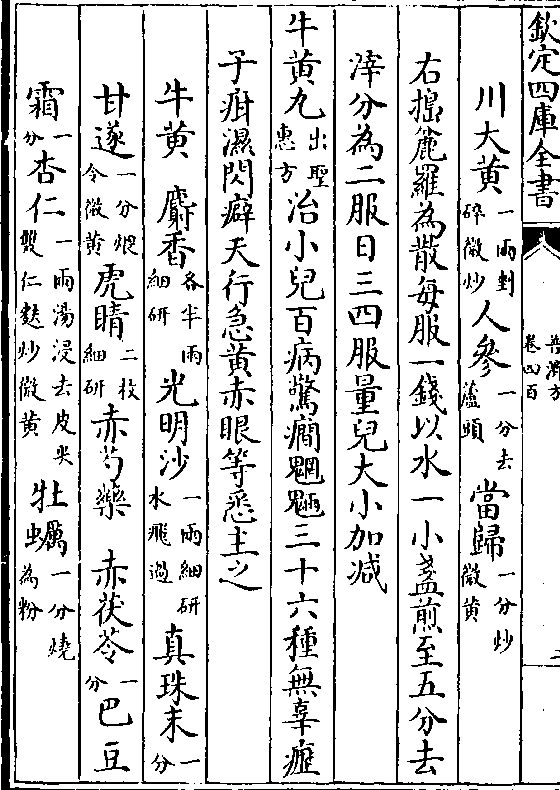 欽定四庫全書
普濟方
卷四百
川大黃一兩剉碎微炒人參一分去蘆頭當歸一分炒微黃
右搗麄羅為散每服一錢以水一小盞煎至五分去
滓分為二服日三四服量兒大小加减
牛黃丸出聖惠方治小兒百病驚癎魍魎三十六種無辜疰
子疳濕閃癖天行急黃赤眼等悉主之
牛黃 麝香各半兩細研光明沙一兩細研水飛過真珠末一分
甘遂一分煨令微黃虎睛二枚細研赤芍藥 赤茯苓一分巴豆
霜一分杏仁一兩湯浸去皮尖雙仁麩炒微黃牡蠣一分燒為粉